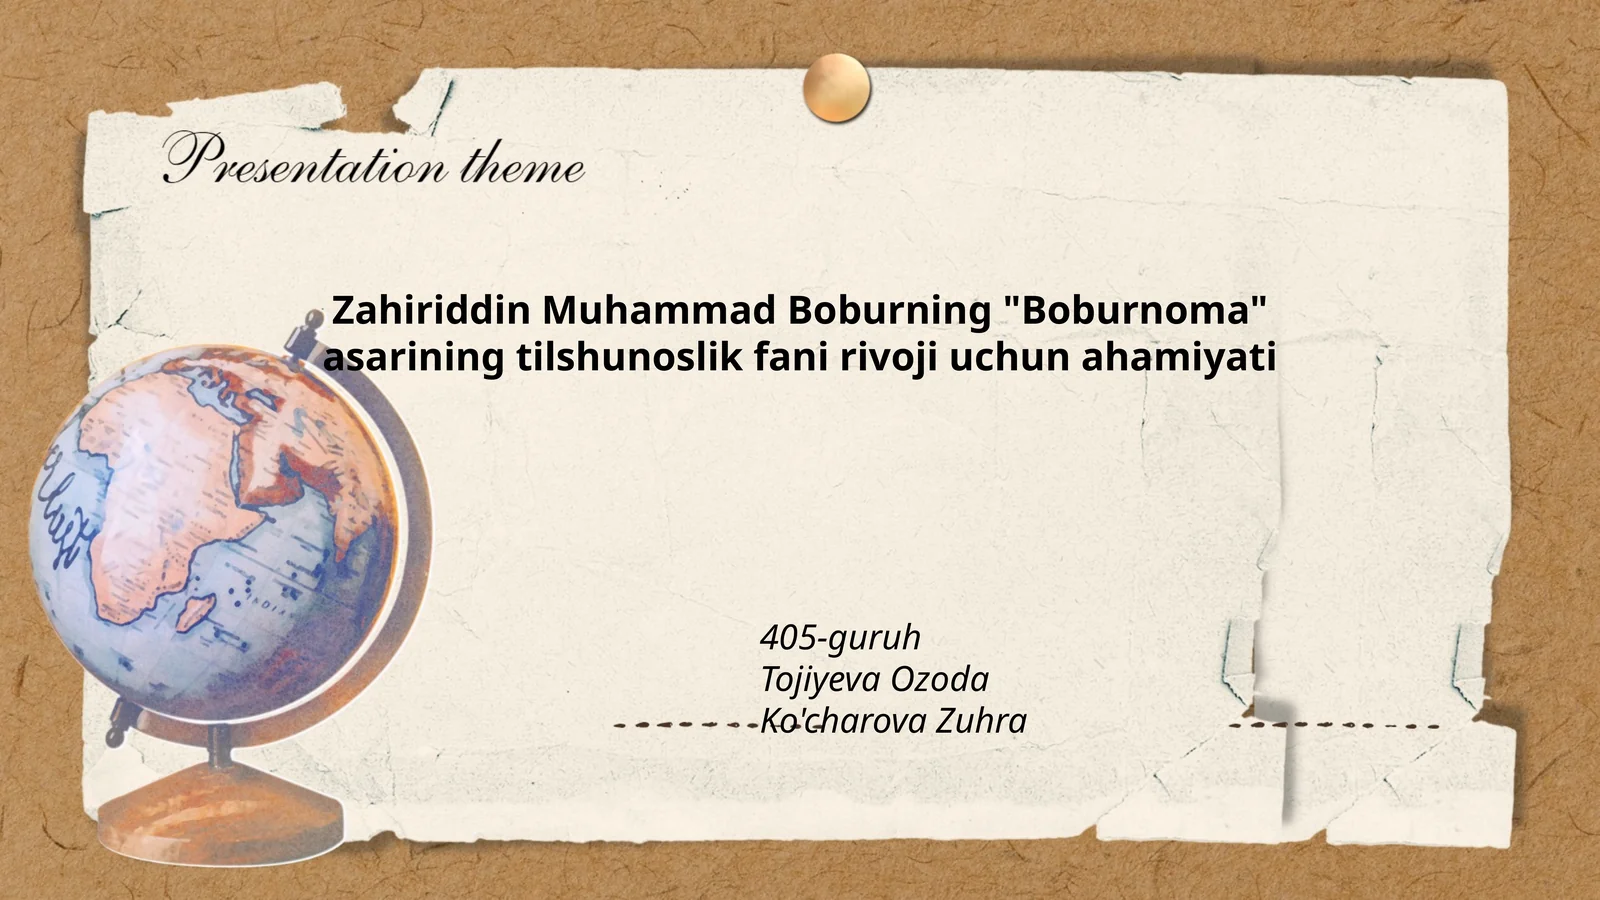 Presentation theme
Zahiriddin Muhammad Boburning "Boburnoma"
asarining tilshunoslik fani rivoji uchun ahamiyati
405-guruh
Tojiyeva Ozoda
Ko'charova Zuhra